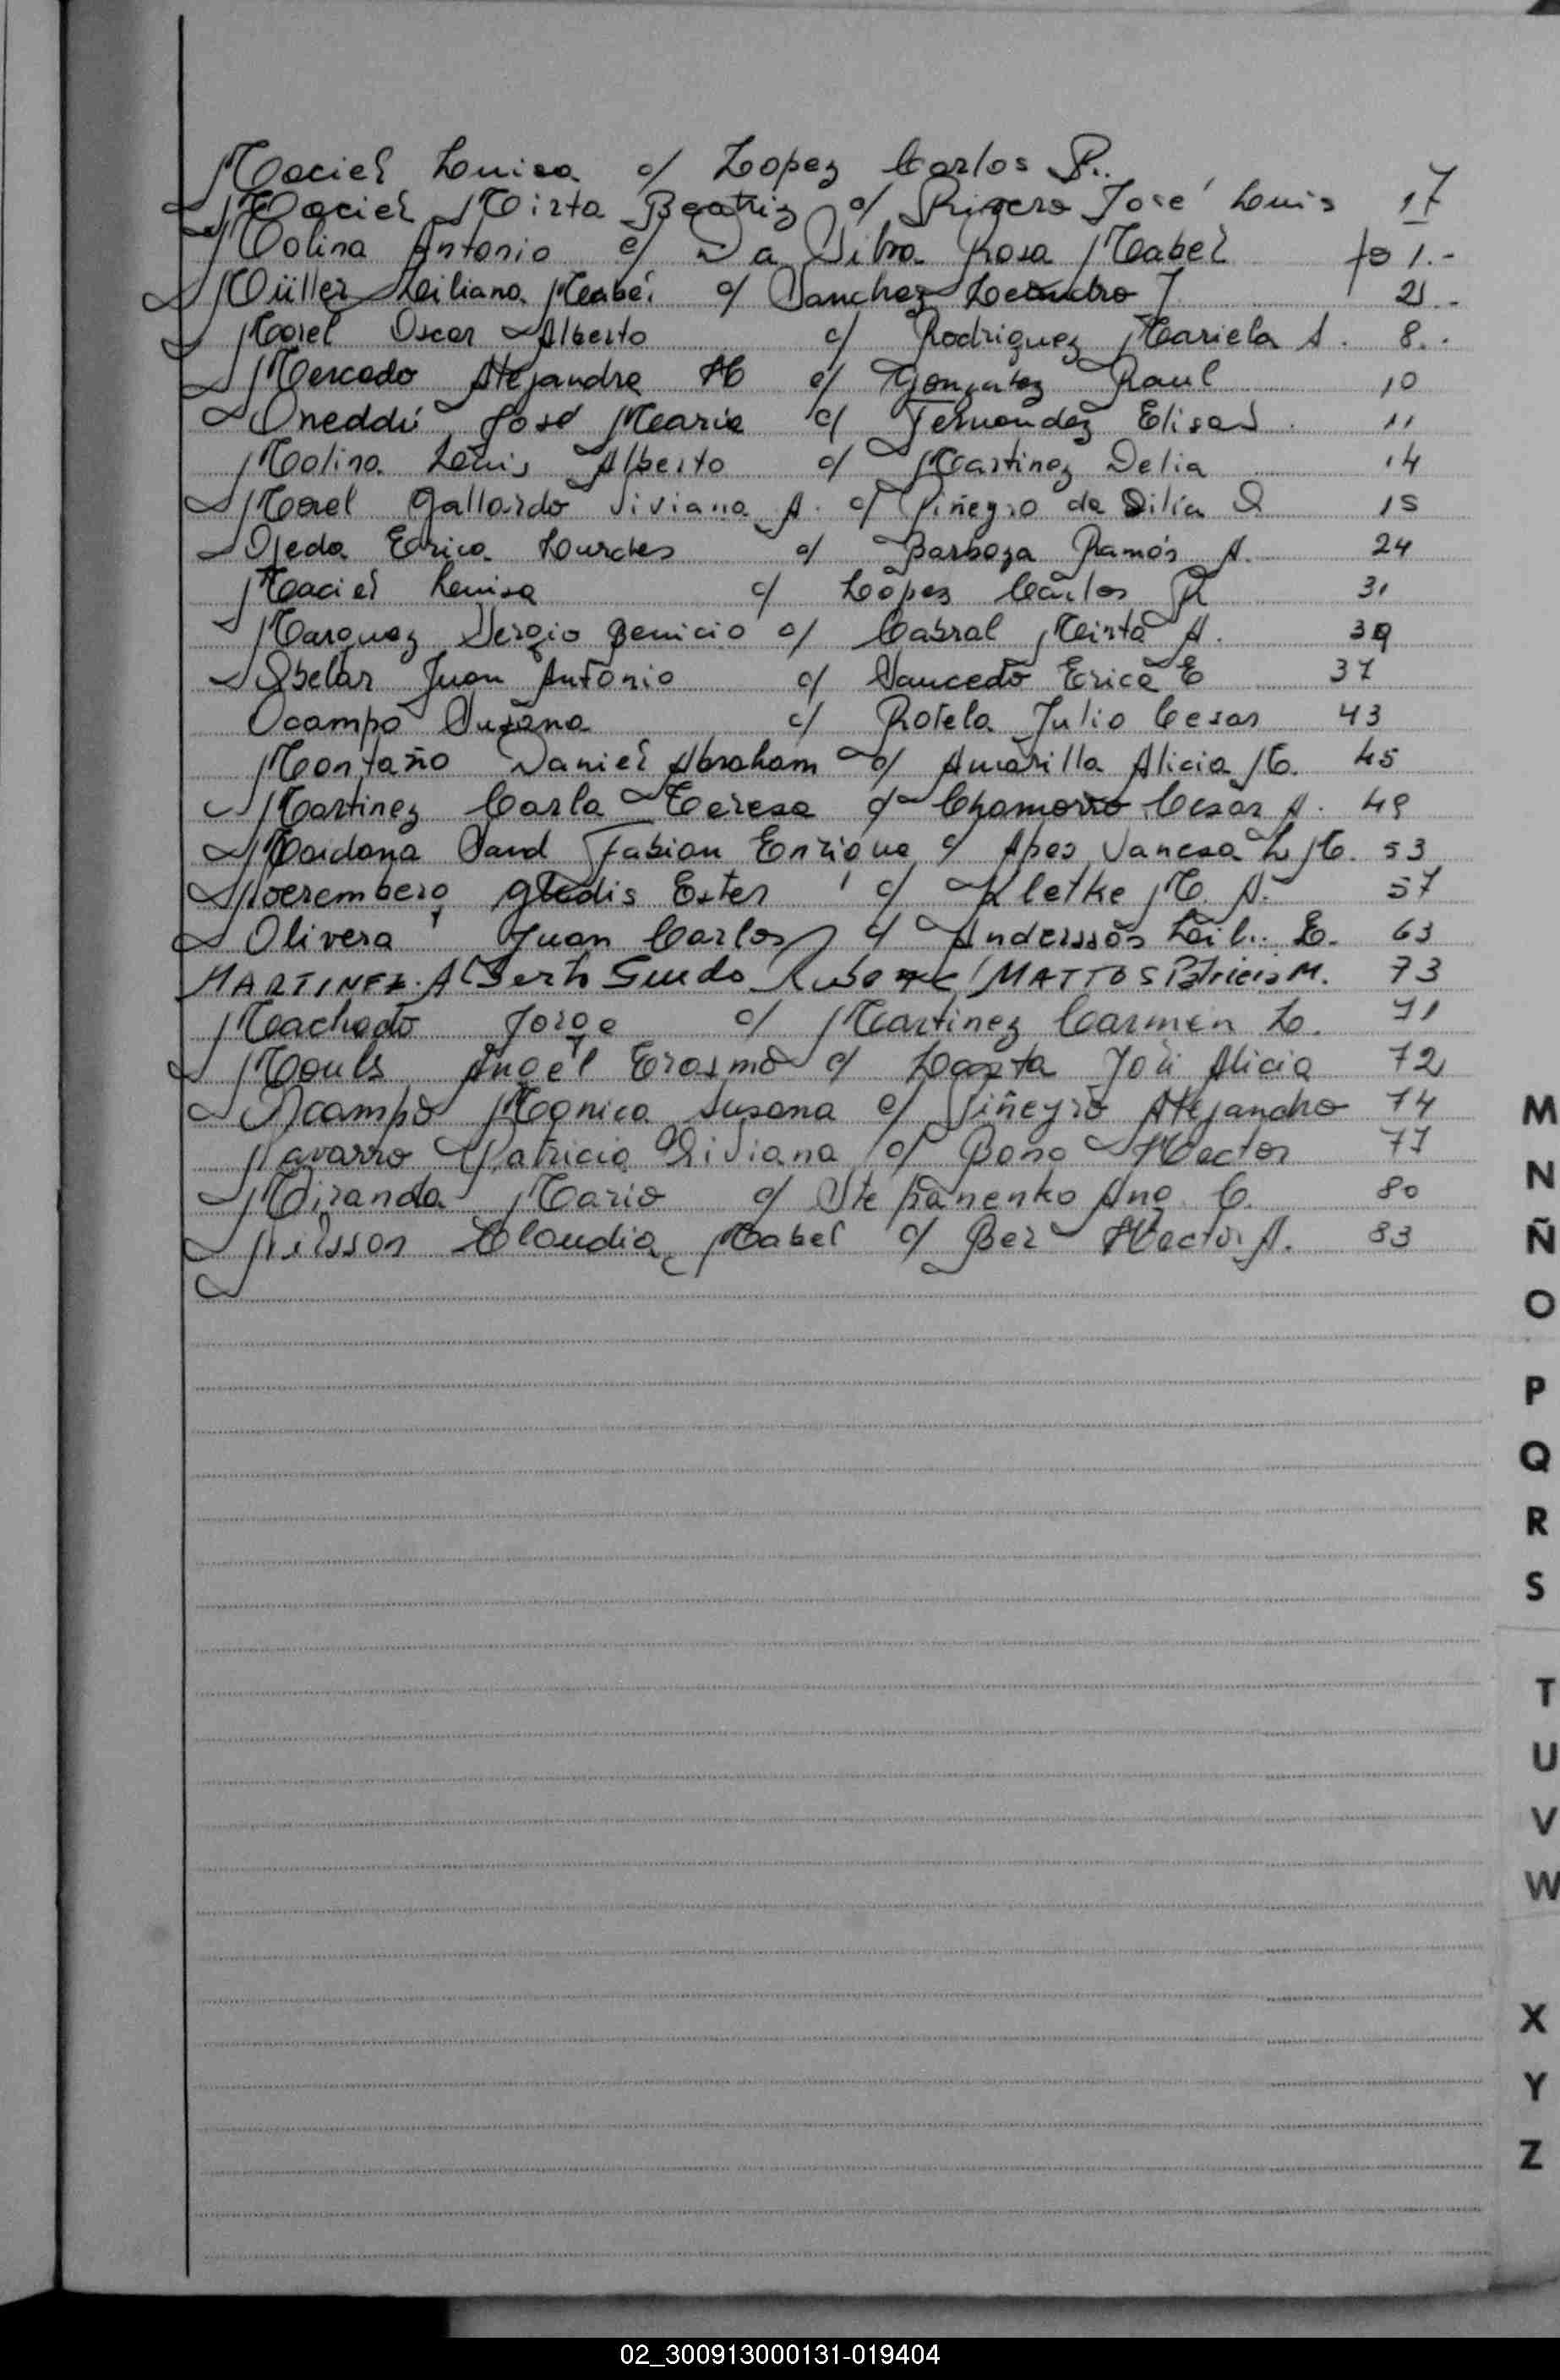 Maciel Luisa c/ Lopez Carlos R..
Maciel Mirta Beatriz c/ Rivero José Luis 17
Molina Antonio c/ Da Silva Rosa Mabel fo 1.-
Müller Liliana Mabel c/ Sanchez Leandro J 2.-
Morel Oscar Alberto c/ Rodriguez Mariela A. 8..
Mercado Alejandra M c/ Gonzalez Raul 10
Oneddú José Maria c/ Fernandez Elisa 11
Molina Luis Alberto c/ Martinez Delia 14
Morel Gallardo Viviana A. c/ Piñeyro da Silia 15
Ojeda Erica Lourdes c/ Barboza Ramón A. 24
Maciel Luisa c/ López Carlos R 31
Marquez Sergio Benicio c/ Cabral Mirta A. 39
Obelar Juan Antonio c/ Saucedo Erica E 37
Ocampo Susana c/ Rotela Julio Cesar 43
Montaño Daniel Abraham c/ Amarilla Alicia M. 45
Martinez Carla Teresa c/ Chamorro Cesar A. 49
Maidana Sand Fabian Enrique c/ Apes Vanesa L M. 53
Noeremberg Gledis Ester c/ Kletke M. A. 57
Olivera Juan Carlos c/ Anderssõn E. 63
MARTINEZ Alberto Guido Ruben c/ MATTOS Patricia M. 73
Machado Jorge c/ Martinez Carmen L. 71
Mouls Angel Erasmo c/ Alicia 72
Ocampo Monica Susana c/ Piñeyro Alejandro 74
Navarro Patricia Viviana c/ Bono Hector 77
Miranda Mario c/ Stepanenko Ana C. 80
Nilsson Claudia Mabel c/ Bez Hector A. 83
M
N
Ñ
O
P
Q
R
S
T
U
V
W
X
Y
Z
02_300913000131-019404